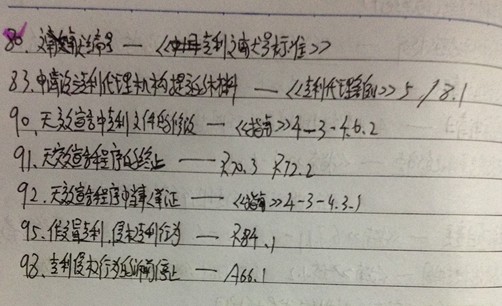 80. 申请号的编号 — 《中国专利申请号标准》
83. 申请设立专利代理机构提交的材料 — 《专利代理条例》5 / 8.1
90. 无效宣告中专利文件的修改 — 《指南》4-3-4.6.2
91. 无效宣告程序的终止 — R70.3 R72.2
92. 无效宣告程序中当事人举证 — 《指南》4-3-4.3.1
95. 假冒专利,侵犯专利行为 — R84.1
98. 专利侵权行为的诉前停止 — A66.1